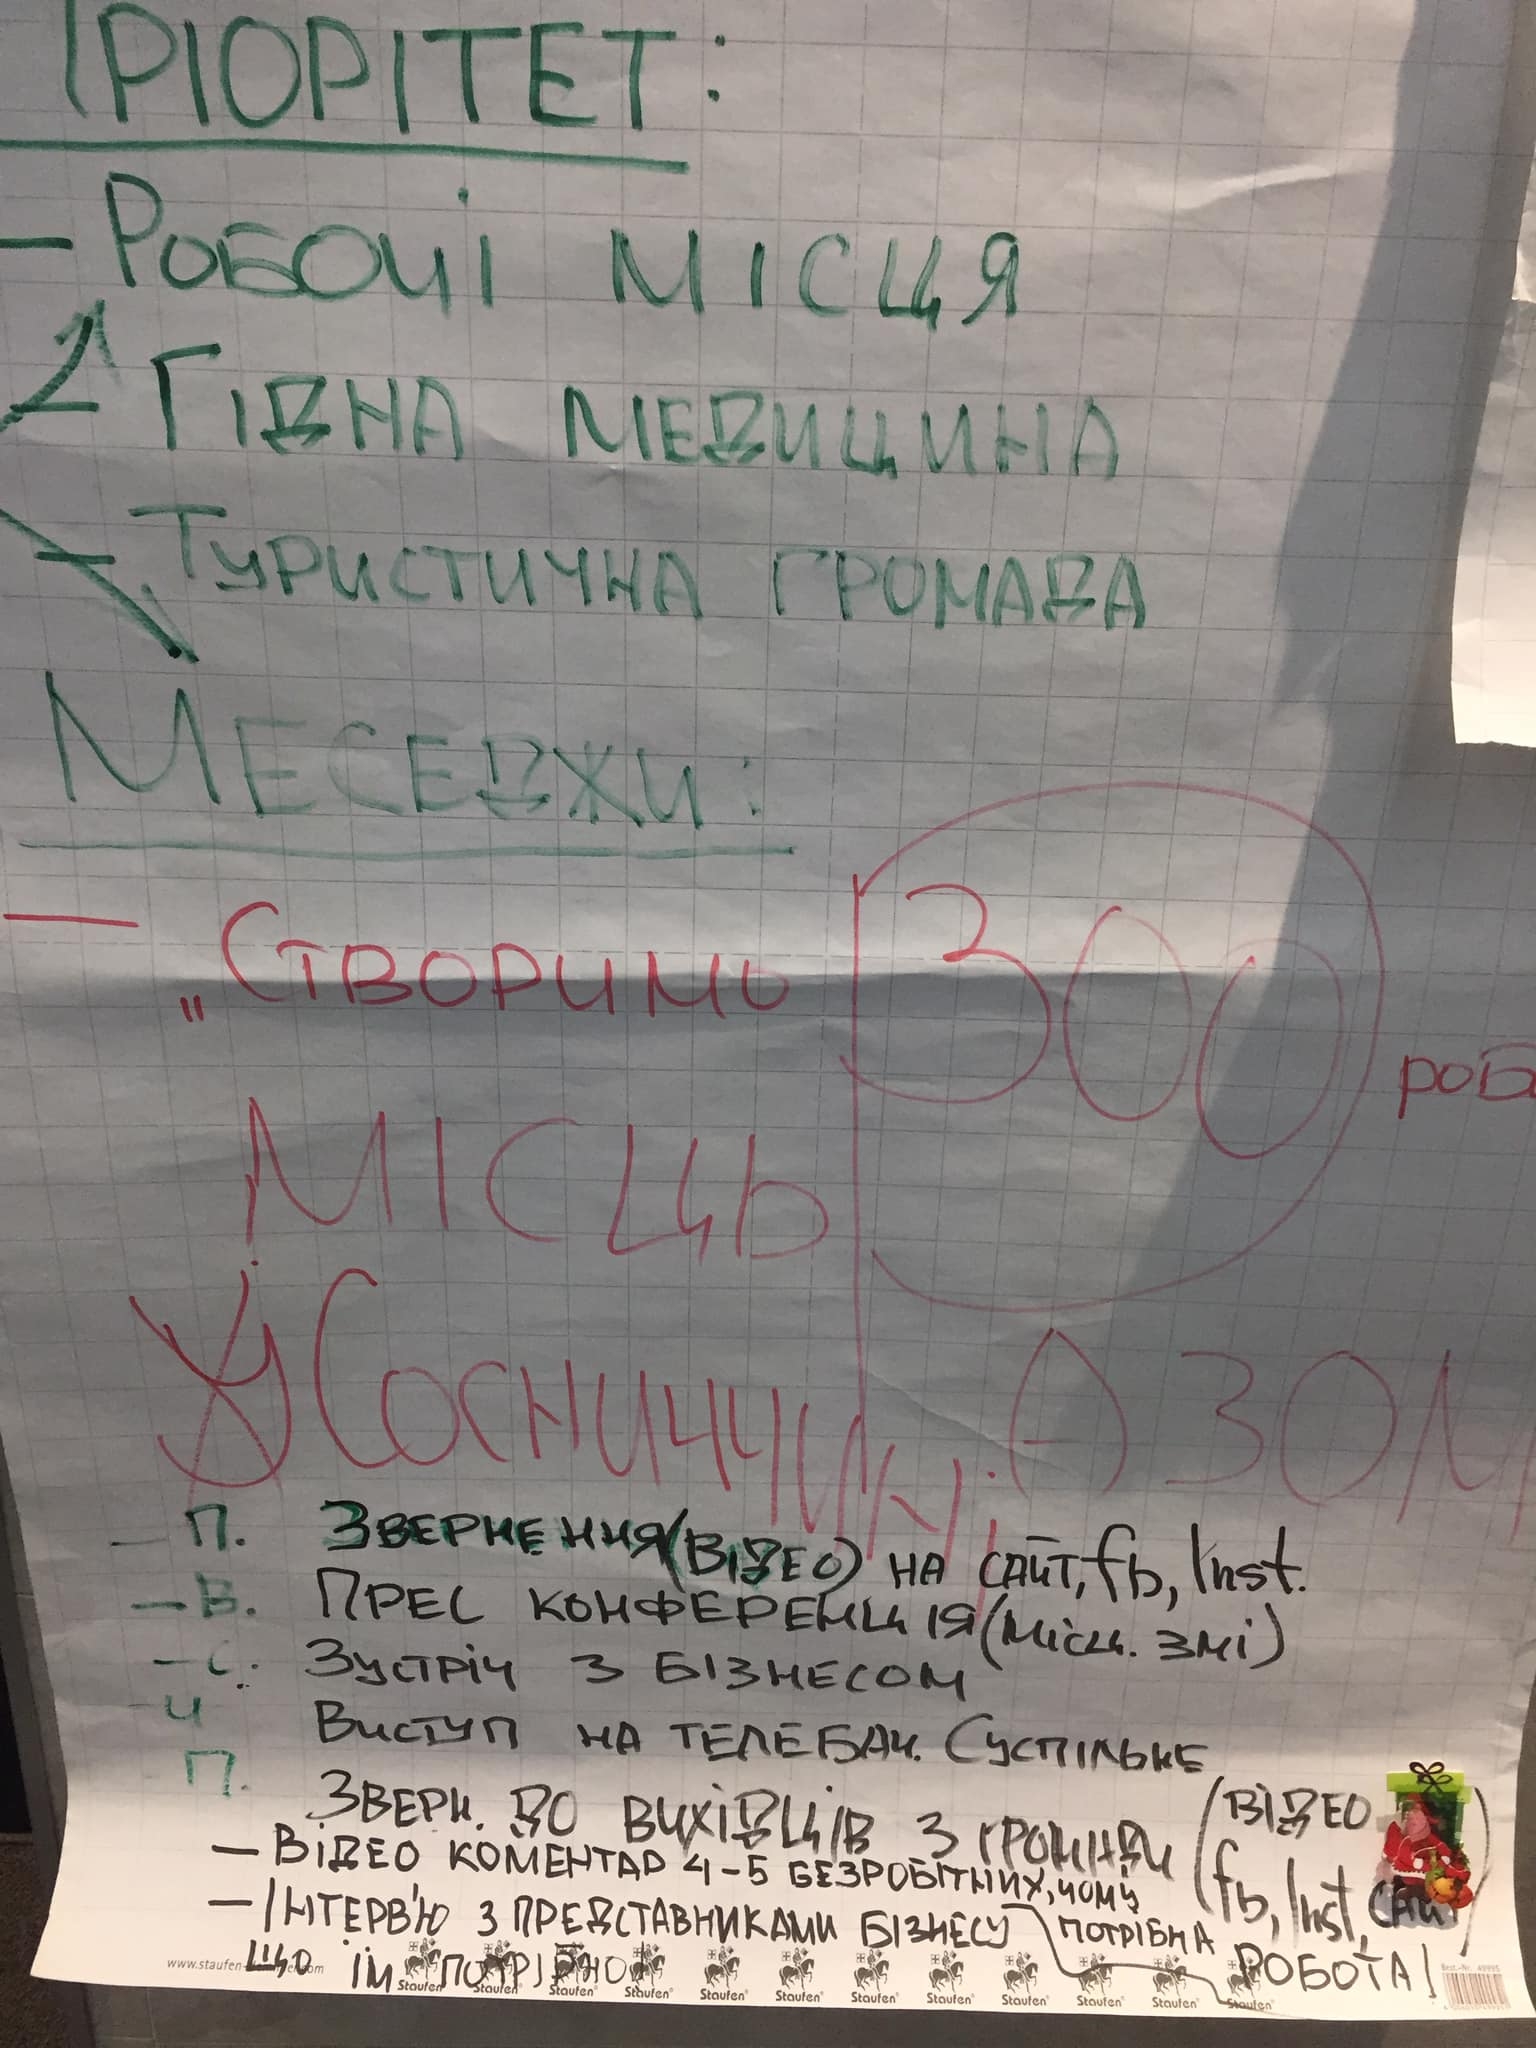 ПРІОРІТЕТ:
- РОБОЧІ МІСЦЯ
ГІДНА МЕДИЦИНА
- ТУРИСТИЧНА ГРОМАДА
МЕСЕДЖИ:
- „СТВОРИМО 300 роб
МІСЦЬ
У СОСНИЧЧИНІ
- П. ЗВЕРНЕННЯ (ВІДЕО) НА САЙТ, fb, Inst.
- В. ПРЕС КОНФЕРЕНЦІЯ (МІСЦ. ЗМІ)
- С. ЗУСТРІЧ З БІЗНЕСОМ
- Ч ВИСТУП НА ТЕЛЕБАЧ. СУСПІЛЬНЕ
- П. ЗВЕРН. ДО ВИХІДЦІВ З ГРОМАДИ (ВІДЕО fb, Inst, САЙТ)
- ВІДЕО КОМЕНТАР 4-5 БЕЗРОБІТНИХ, ЧОМУ ПОТРІБНА РОБОТА!
- ІНТЕРВ'Ю З ПРЕДСТАВНИКАМИ БІЗНЕСУ
ЩО ЇМ ПОТРІБНО!
www.staufen
Staufen Staufen Staufen Staufen Staufen Staufen Staufen Staufen Staufen Staufen Staufen Staufen
Best.-Nr. 49995